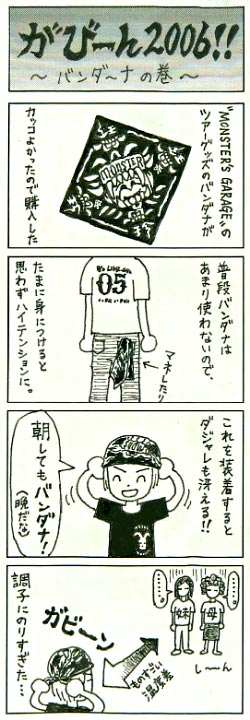 がびーん2006!!
～バンダ～ナの巻～
"MONSTER'S GARAGE"の
ツアーグッズのバンダナが
カッコよかったので購入した
MONSTER
普段バンダナは
あまり使わないので、
たまに身につけると
思わずハイテンションに。
05
マネしたり
これを装着すると
ダジャレも冴える!!
朝してもバンダナ!
(晩だな)
母
妹
し～ん
ものすごい
温度差
ガビーン
調子にのりすぎた…